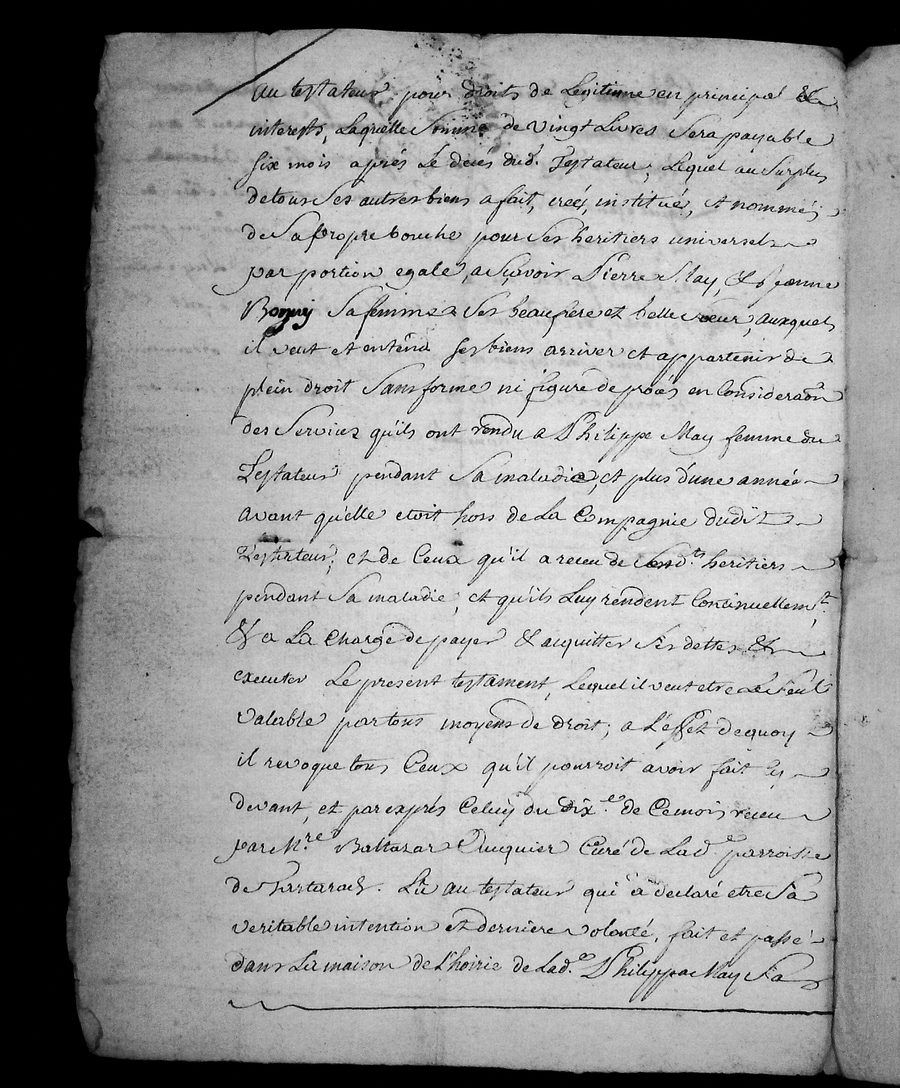 au testateur pour droits de Legitime en principal &
interests, Laquelle Somme de vingt Livres Sera payable
six mois aprés Le deces dud.t Testateur; Lequel au Surplus
de tous Ses autres biens a fait, creé, institué, et nommé
de Sa propre bouche pour Ses heritiers universels
par portion egale, a Sçavoir Pierre May, & Jeanne
Sa femme Ses beaufrere et belle Sœur, auxquels
il veut et entend ses biens arriver et appartenir de
plein droit Sans forme ni figure de procés en Consideraõn
des Services qu'ils ont rendu a Philippe May femme du
Testateur pendant Sa maladie, et plus d'une année
avant qu'elle etoit hors de La Compagnie dudit
Testateur; et de Ceux qu'il a receu de Sesd.ts heritiers
pendant Sa maladie, et qu'ils Luy rendent Continuellem.t
& a La Charge de payer & acquitter Ses dettes &
executer Le present testament, Lequel il veut etre Le Seul
valable par tous moyens de droit; a L'effet de quoy
il revoque tous Ceux qu'il pourroit avoir fait Cy
devant, et par exprés Celuy du dix.e de Ce mois receu
par M.re Baltazar Curé de Lad.e parroisse
de Lû au testateur qui a declaré etre Sa
veritable intention et derniere volonté, fait et passé
dans La maison de L'hoirie de Lad.e Philippe May Sa